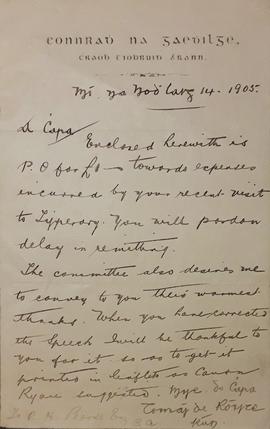 CONNRAD NA GAEDILGE,
CRAOB TIOBRUID ÁRANN.
Mí na Nodlag 14. 1905.
A Cara
Enclosed herewith is
P.O for £1 – towards expenses
incurred by your recent visit
to Tipperary. You will pardon
delay in remitting.
The committee also desires me
to convey to you their warmest
thanks. When you have corrected
the Speech I will be thankful to
you for it so as to get it
printed in leaflets as Canon
Ryan suggested. Mise do Cara
Tomás de
To P. H. B.A.